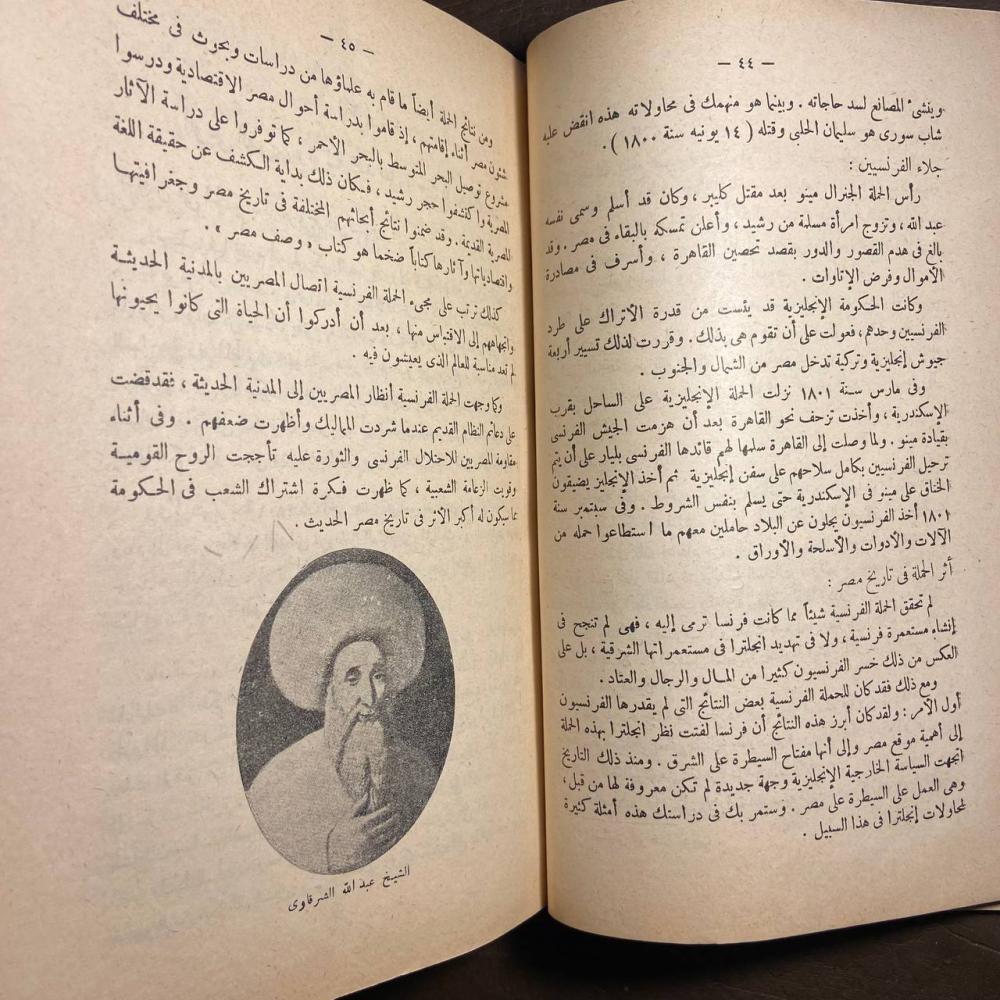 — ٤٤ —
وينشئ المصانع لسد حاجاته . وبينما هو منهمك فى محاولاته هذه انقض عليه
شاب سورى هو سليمان الحلبى وقتله ( ١٤ يونيه سنة ١٨٠٠ ) .
جلاء الفرنسيين :
رأس الحملة الجنرال مينو بعد مقتل كليبر ، وكان قد أسلم وسمى نفسه
عبد الله ، وتزوج امرأة مسلمة من رشيد ، وأعلن تمسكه بالبقاء فى مصر . وقد
بالغ فى هدم القصور والدور بقصد تحصين القاهرة ، وأسرف فى مصادرة
الأموال وفرض الإتاوات .
وكانت الحكومة الإنجليزية قد يئست من قدرة الأتراك على طرد
الفرنسيين وحدهم ، فعولت على أن تقوم هى بذلك . وقررت لذلك تسيير أربعة
جيوش إنجليزية وتركية تدخل مصر من الشمال والجنوب .
وفى مارس سنة ١٨٠١ نزلت الحملة الإنجليزية على الساحل بقرب
الإسكندرية ، وأخذت تزحف نحو القاهرة بعد أن هزمت الجيش الفرنسى
بقيادة مينو . ولما وصلت إلى القاهرة سلمها لهم قائدها الفرنسى بليار على أن يتم
ترحيل الفرنسيين بكامل سلاحهم على سفن إنجليزية . ثم أخذ الإنجليز يضيقون
الخناق على مينو فى الإسكندرية حتى يسلم بنفس الشروط . وفى سبتمبر سنة
١٨٠١ أخذ الفرنسيون يجلون عن البلاد حاملين معهم ما استطاعوا حمله من
الآلات والأدوات والأسلحة والأوراق .
أثر الحملة فى تاريخ مصر :
لم تحقق الحملة الفرنسية شيئاً مما كانت فرنسا ترمى إليه ، فهى لم تنجح فى
إنشاء مستعمرة فرنسية ، ولا فى تهديد انجلترا فى مستعمراتها الشرقية ، بل على
العكس من ذلك خسر الفرنسيون كثيرا من المال والرجال والعتاد .
ومع ذلك فقد كان للحملة الفرنسية بعض النتائج التى لم يقدرها الفرنسيون
أول الأمر : ولقد كان أبرز هذه النتائج أن فرنسا لفتت نظر انجلترا بهذه الحملة
إلى أهمية موقع مصر وإلى أنها مفتاح السيطرة على الشرق . ومنذ ذلك التاريخ
اتجهت السياسة الخارجية الإنجليزية وجهة جديدة لم تكن معروفة لها من قبل ،
وهى العمل على السيطرة على مصر . وستمر بك فى دراستك هذه أمثلة كثيرة
لمحاولات إنجلترا فى هذا السبيل .
— ٤٥ —
ومن نتائج الحملة أيضاً ما قام به علماؤها من دراسات وبحوث فى مختلف
شئون مصر أثناء إقامتهم ، إذ قاموا بدراسة أحوال مصر الاقتصادية ودرسوا
مشروع توصيل البحر المتوسط بالبحر الأحمر ، كما توفروا على دراسة الآثار
المصرية واكتشفوا حجر رشيد ، فكان ذلك بداية الكشف عن حقيقة اللغة
المصرية القديمة . وقد ضمنوا نتائج أبحاثهم المختلفة فى تاريخ مصر وجغرافيتها
واقتصادياتها وآثارها كتاباً ضخما هو كتاب « وصف مصر » .
كذلك ترتب على مجىء الحملة الفرنسية اتصال المصريين بالمدنية الحديثة
واتجاههم إلى الاقتباس منها ، بعد أن أدركوا أن الحياة التى كانوا يحيونها
لم تعد مناسبة للعالم الذى يعيشون فيه .
وكما وجهت الحملة الفرنسية أنظار المصريين إلى المدنية الحديثة ، فقد قضت
على دعائم النظام القديم عندما شردت المماليك وأظهرت ضعفهم . وفى أثناء
مقاومة المصريين للاحتلال الفرنسى والثورة عليه تأججت الروح القومية
وقويت الزعامة الشعبية ، كما ظهرت فكرة اشتراك الشعب فى الحكومة
مما سيكون له أكبر الأثر فى تاريخ مصر الحديث .
الشيخ عبد الله الشرقاوى